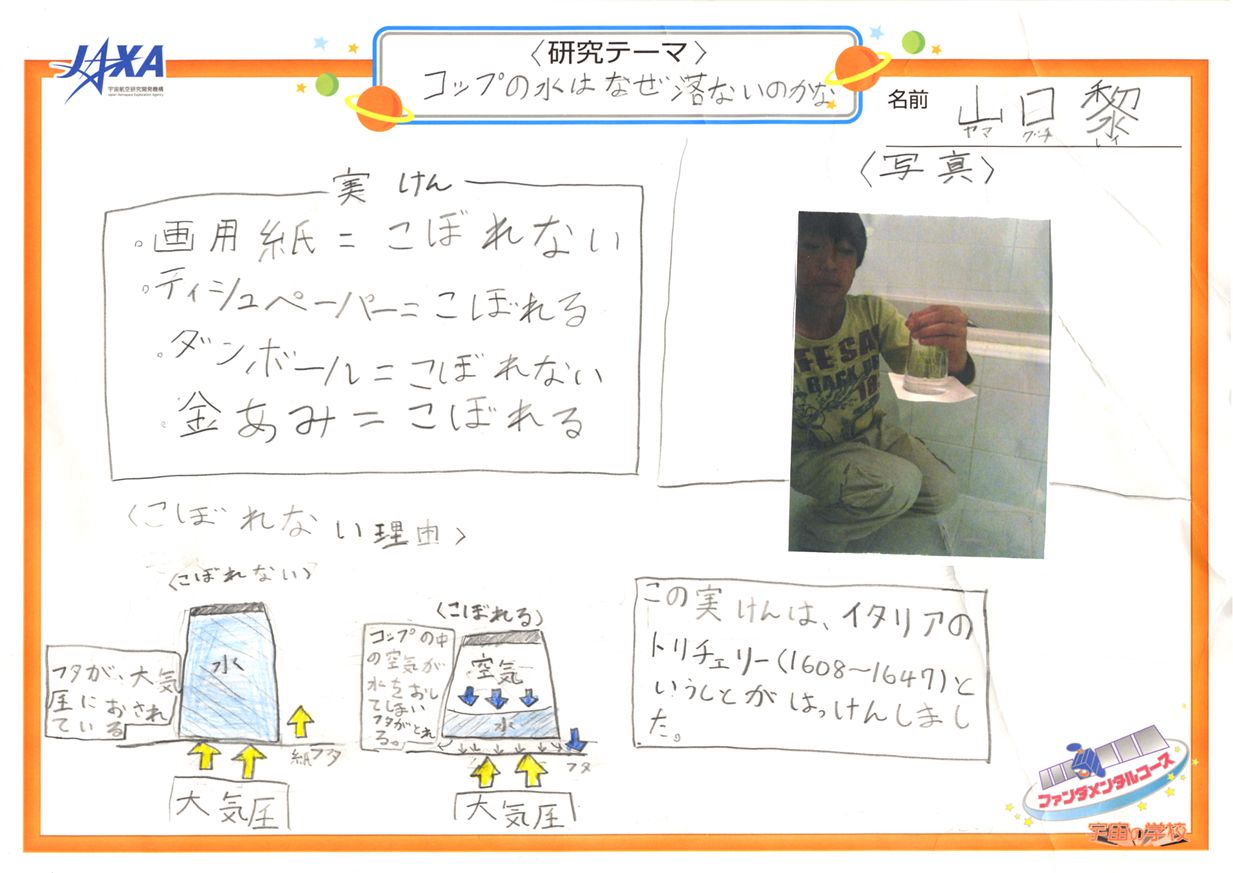 JAXA
宇宙航空研究開発機構
Japan Aerospace Exploration Agency
〈研究テーマ〉
コップの水はなぜ落ないのかな
名前 山口 黎
ヤマ グチ レイ
実けん
。画用紙=こぼれない
。ティシュペーパー=こぼれる
。ダンボール=こぼれない
。金あみ=こぼれる
〈写真〉
〈こぼれない理由〉
〈こぼれない〉
フタが、大気
圧におされ
ている
水
紙フタ
大気圧
〈こぼれる〉
コップの中
の空気が
水をおし
てしまい
フタがとれ
る。
空気
水
フタ
大気圧
この実けんは、イタリアの
トリチェリー(1608〜1647)と
いうひとがはっけんしまし
た。
ファンダメンタルコース
宇宙の学校